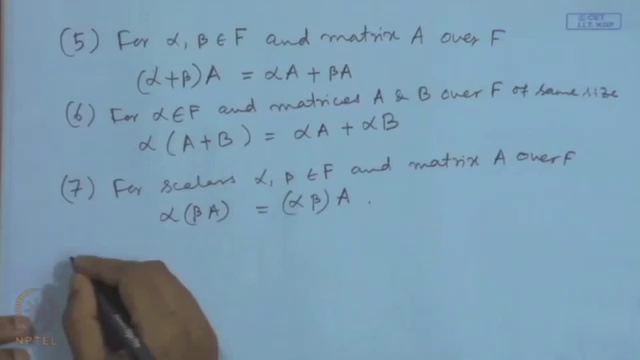 © CET
I.I.T. KGP
(5) For α, β ∈ F and matrix A over F
(α+β)A = αA + βA
(6) For α ∈ F and matrices A & B over F of same size
α (A+B) = αA + αB
(7) For scalars α, β ∈ F and matrix A over F
α(βA) = (αβ)A .
NPTEL